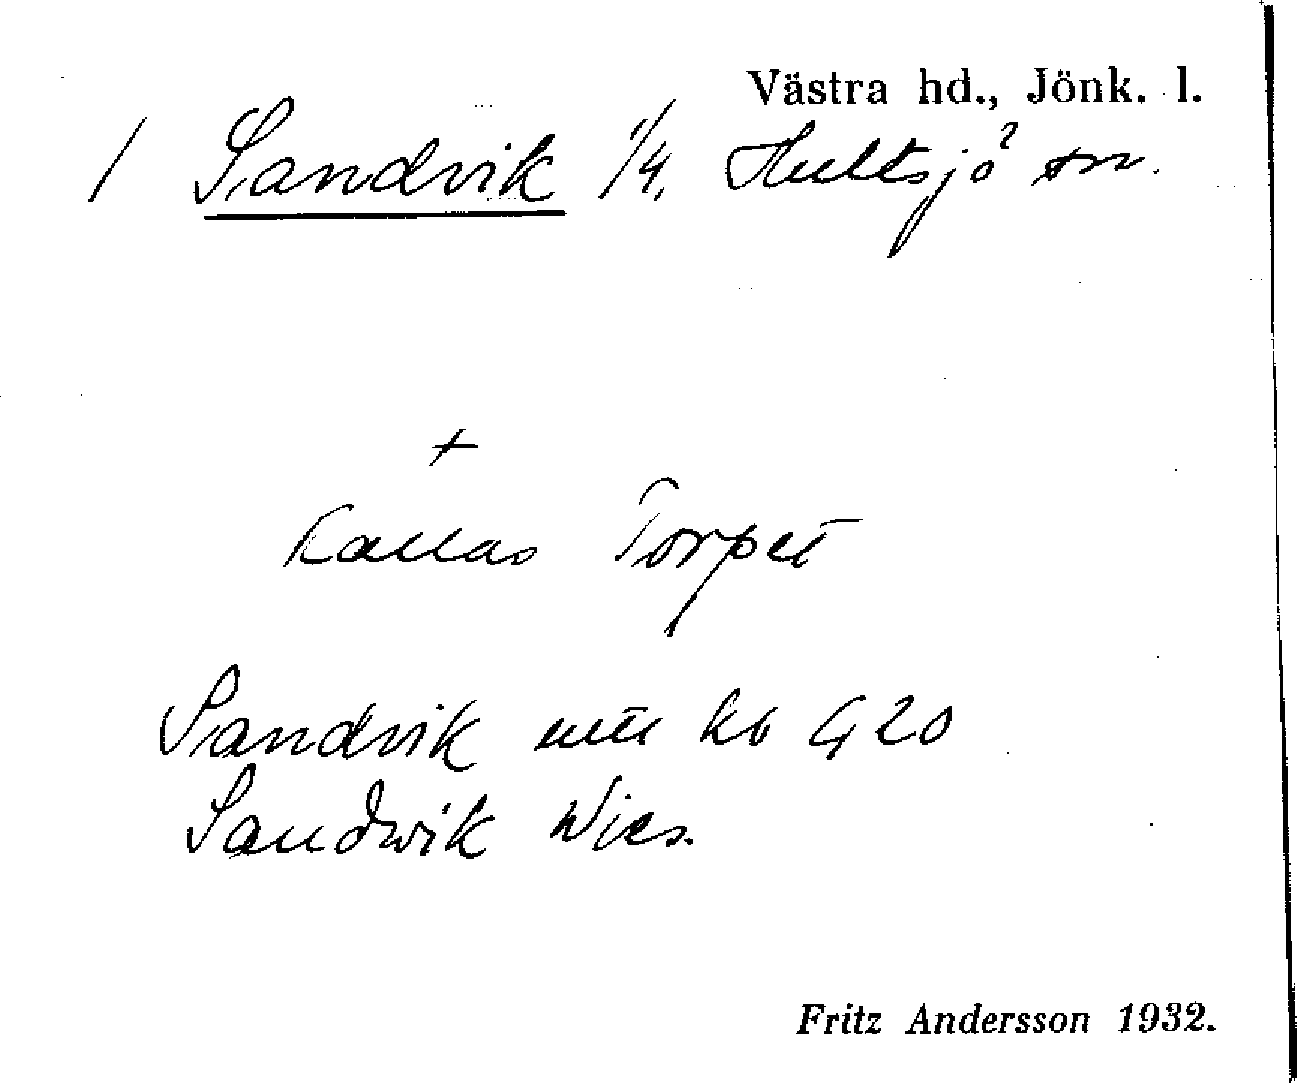 Västra hd., Jönk. l.
/ Sandvik 1/4, Hultsjö sn.
+
Kallas Torpet
Sandvik utu kb G 20
Sandwik Wies.
Fritz Andersson 1932.